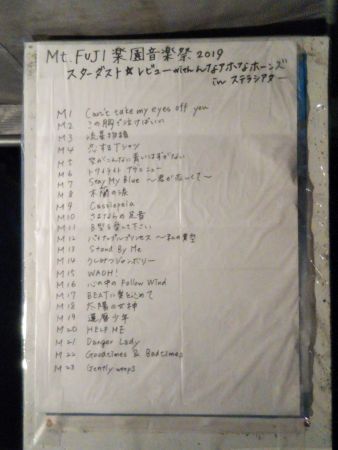 Mt.FUJI 楽園音楽祭 2019
スターダスト☆レビュー with んなアホなホーンズ
in ステラシアター
M1 Can't take my eyes off you
M2 この胸で泣けばいい
M3 流星物語
M4 恋するTシャツ
M5
M6 トワイライト アヴェニュー
M7 Stay My Blue 〜君が恋しくて〜
M8 木蘭の涙
M9 Cassiopeia
M10 さよならの足音
M11
M12
M13 Stand By Me
M14
M15 WAOH!
M16 心の中の Follow Wind
M17 BEATに愛を込めて
M18 太陽の女神
M19 還暦少年
M20 HELP ME
M21 Danger Lady
M22 Goodtimes & Badtimes
M23 Gently weeps